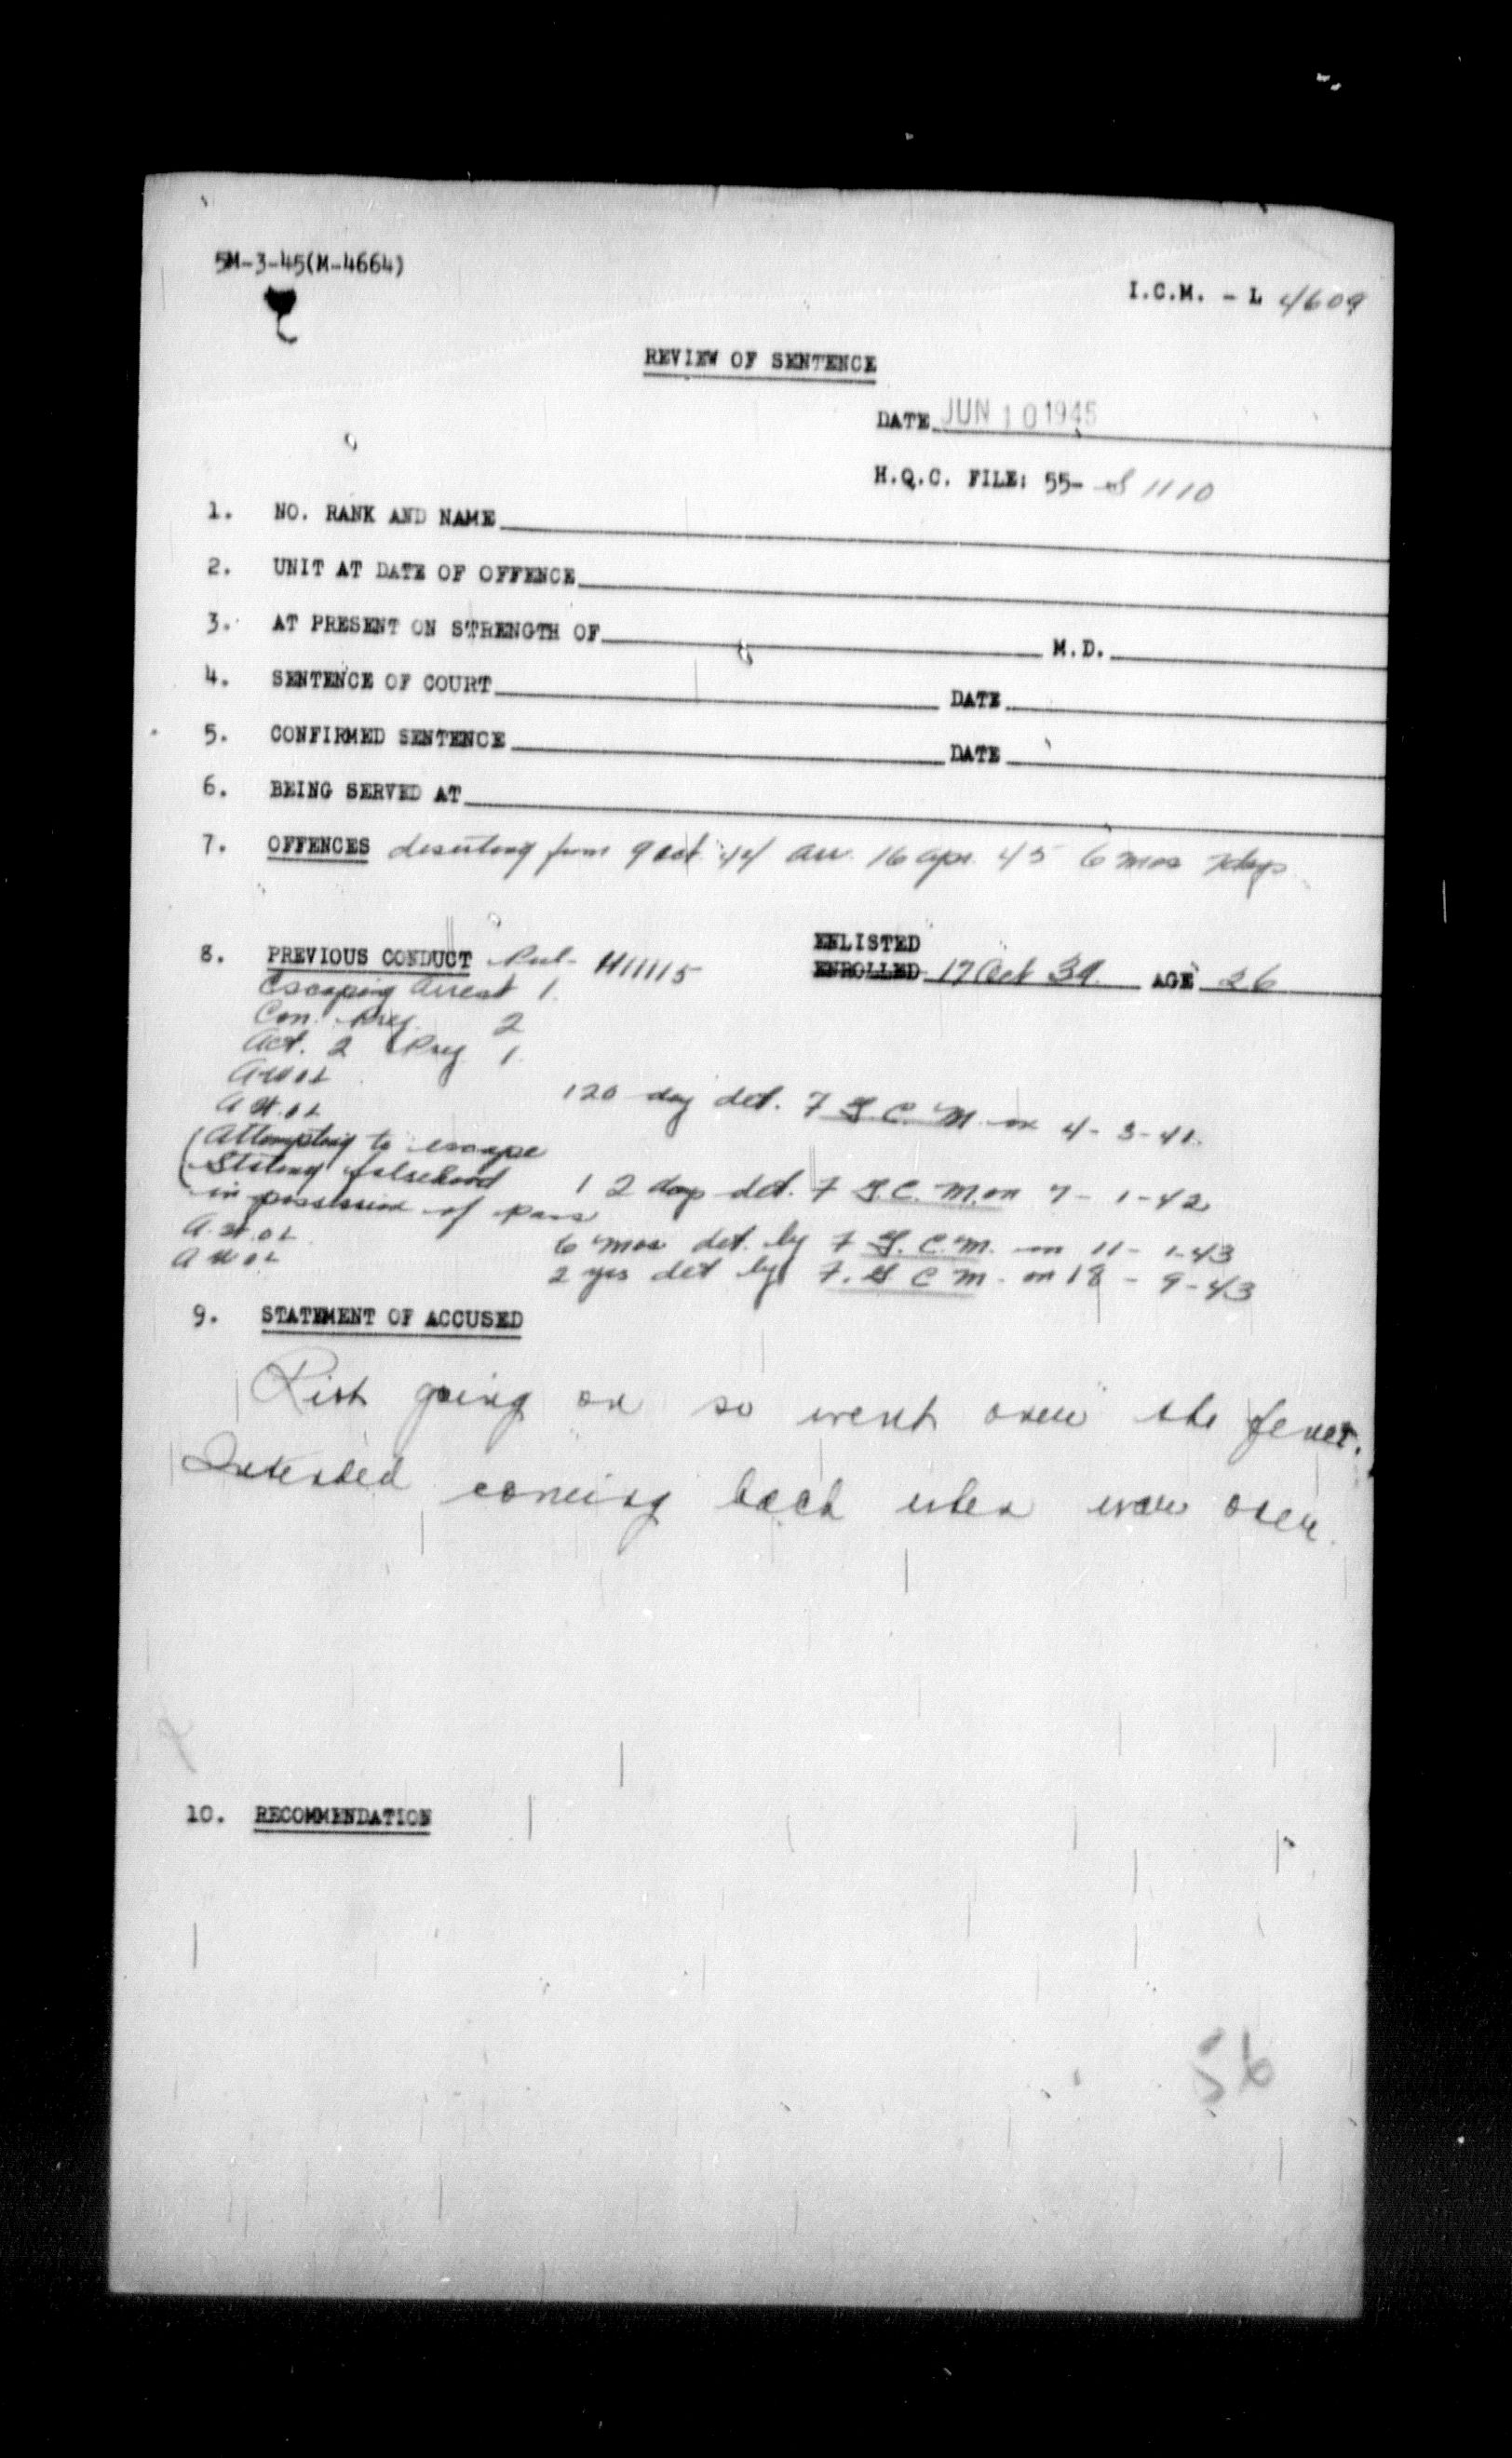 5M-3-45(M-4664)
I.C.M. - L 4609
REVIEW OF SENTENCE
DATE JUN 10 1945
H.Q.C. FILE: 55- S 1110
1. NO. RANK AND NAME
2. UNIT AT DATE OF OFFENCE
3. AT PRESENT ON STRENGTH OF M.D.
4. SENTENCE OF COURT DATE
5. CONFIRMED SENTENCE DATE
6. BEING SERVED AT
7. OFFENCES deserting from 9 Oct. 44 arr. 16 Apr. 45 6 mos 7 days
ENLISTED
8. PREVIOUS CONDUCT ENROLLED 17 Oct 39. AGE 26
Escaping Arrest 1.
Con. Prej. 2
Act. 2 Prej 1.
AWOL
A.W.OL 120 day det. F G.C.M. on 4-3-41.
(Attempting to escape
(Stating falsehood 12 days det. F G.C.M. on 7-1-42
in possession of pass
A.W.OL 6 mos det. by F G.C.M. on 11-1-43
AWOL 2 yrs det by F.G.C.M. on 18-9-43
9. STATEMENT OF ACCUSED
Riot going on so went over the fence.
Intended coming back when war over.
10. RECOMMENDATION
56